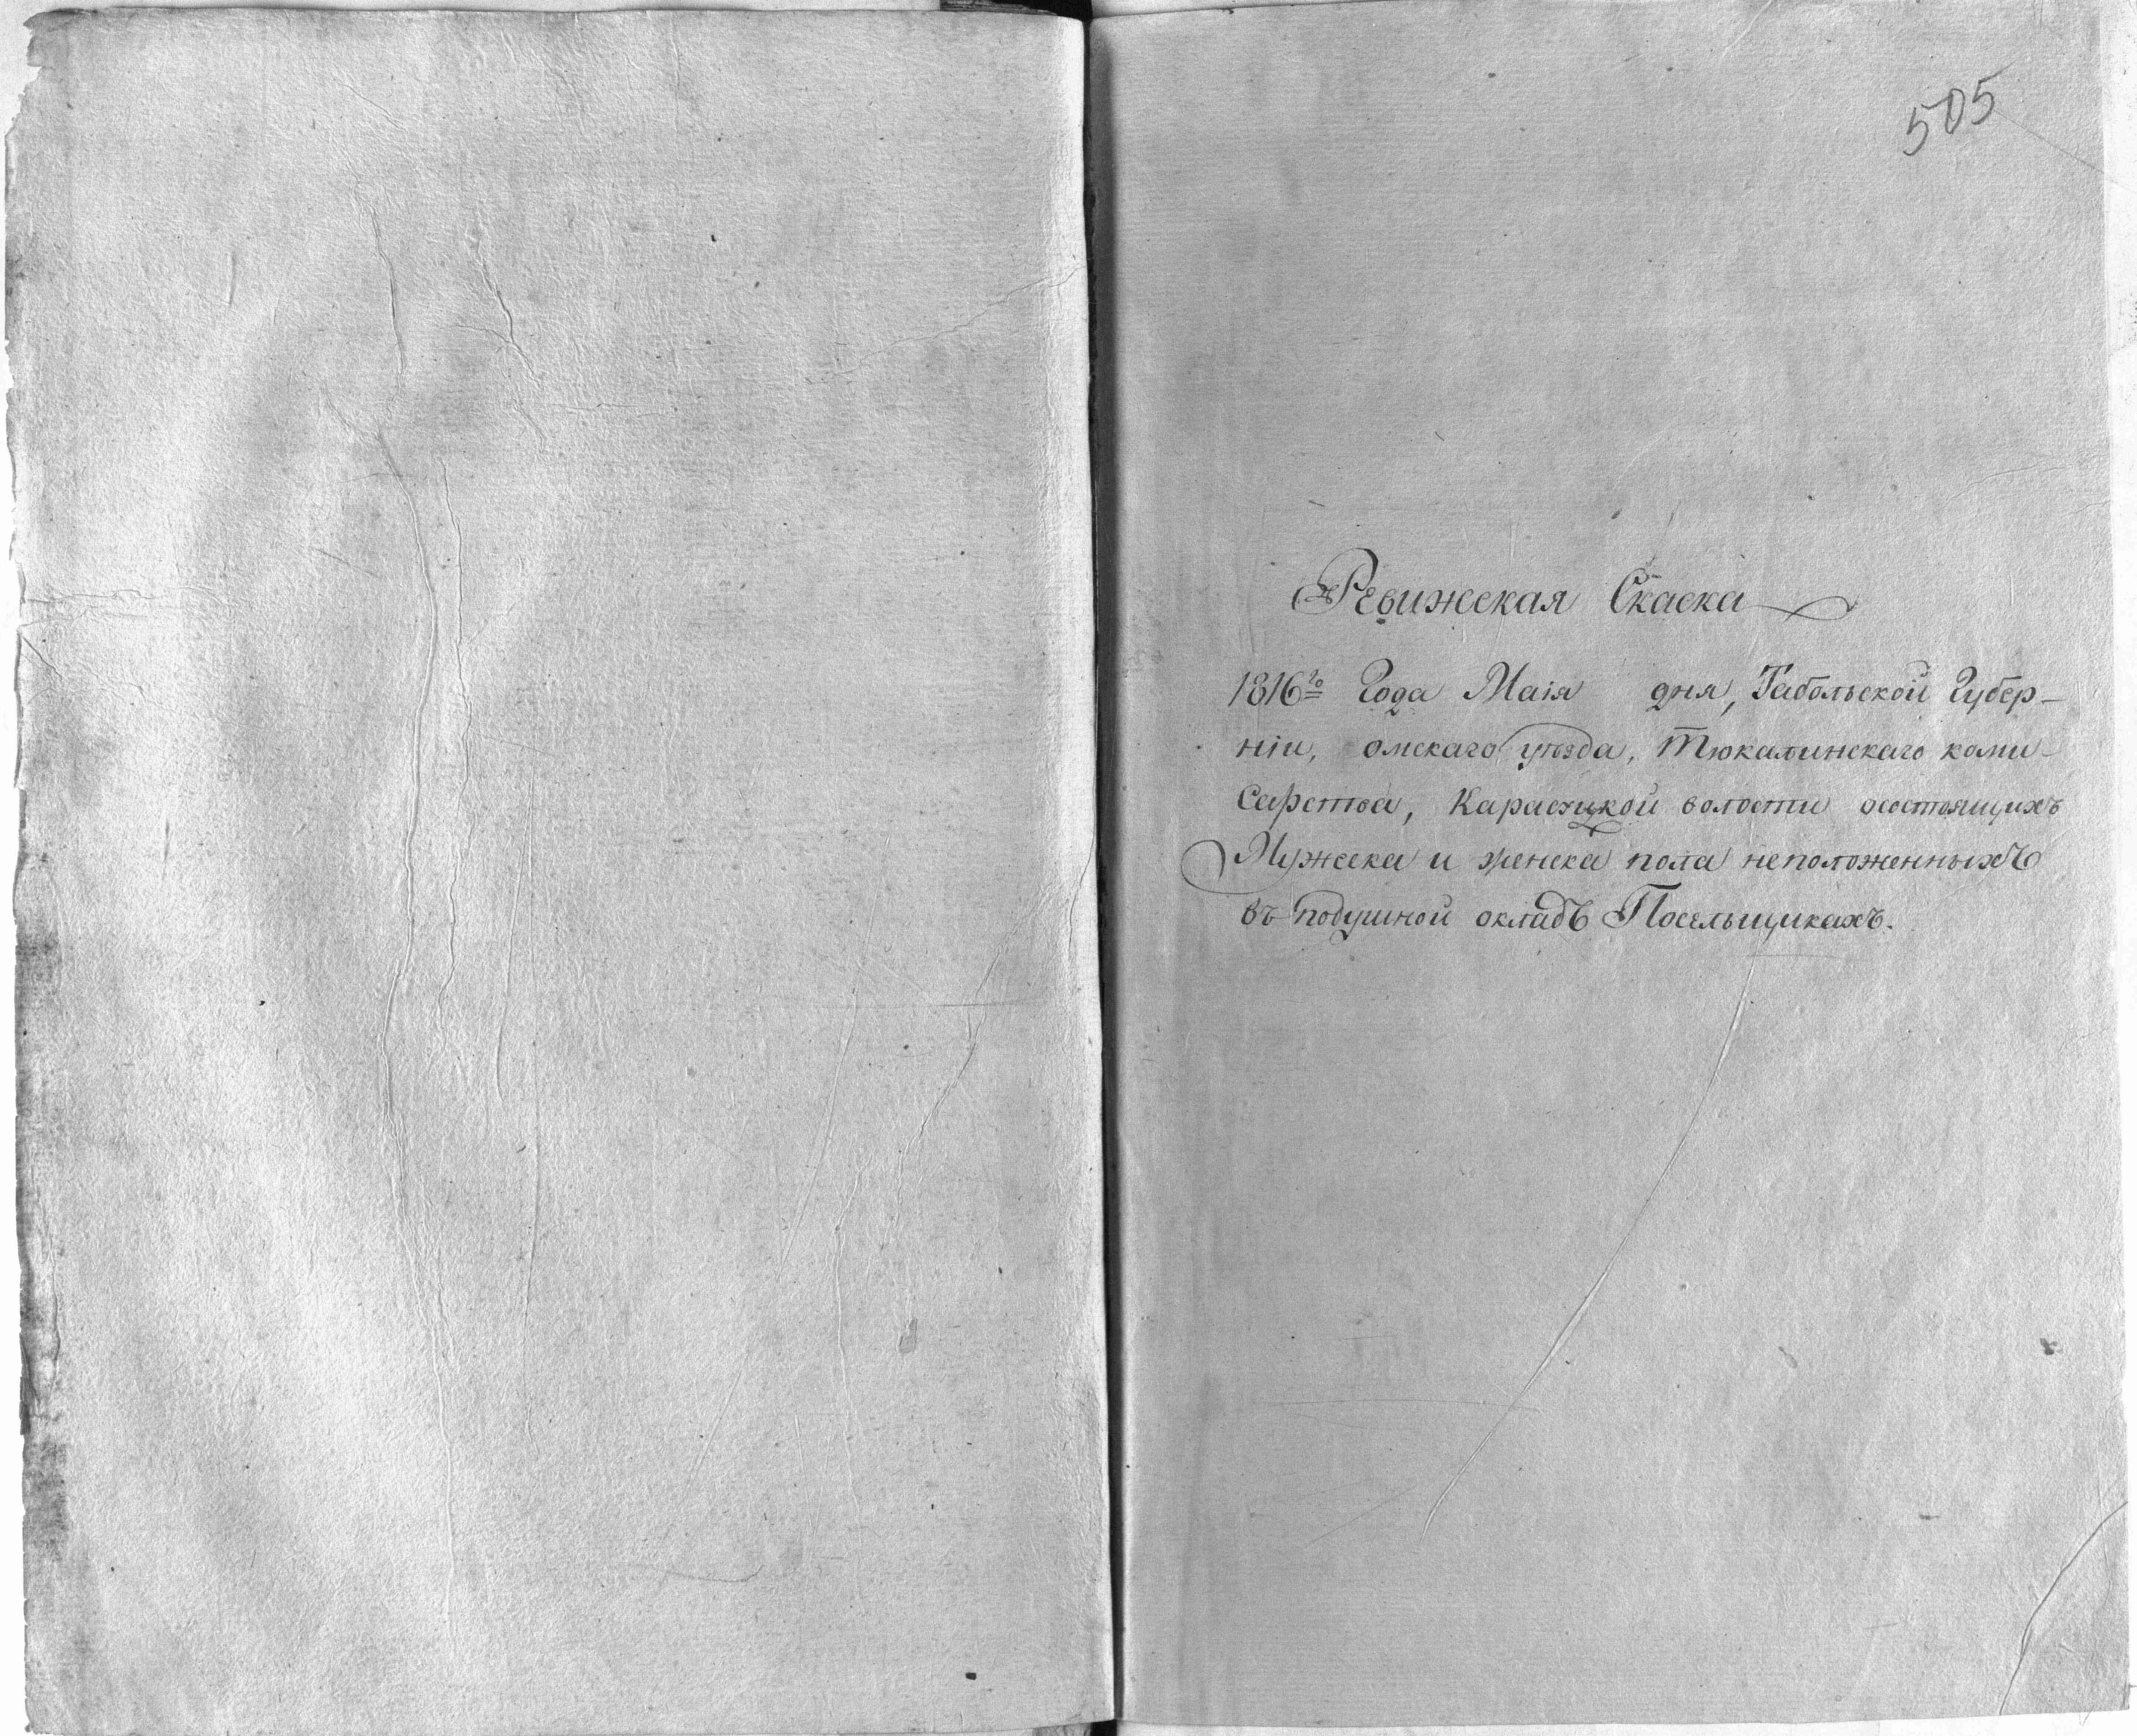 505
Ревижская Скаска
1816го Года Маія дня, Табольской Губер-
ніи, омскаго уѣзда, Тюкалинскаго коми-
Сарства, волости осостоящихъ
Мужеска и женска пола неположенныхъ
въ подушной окладъ Посельщикахъ.